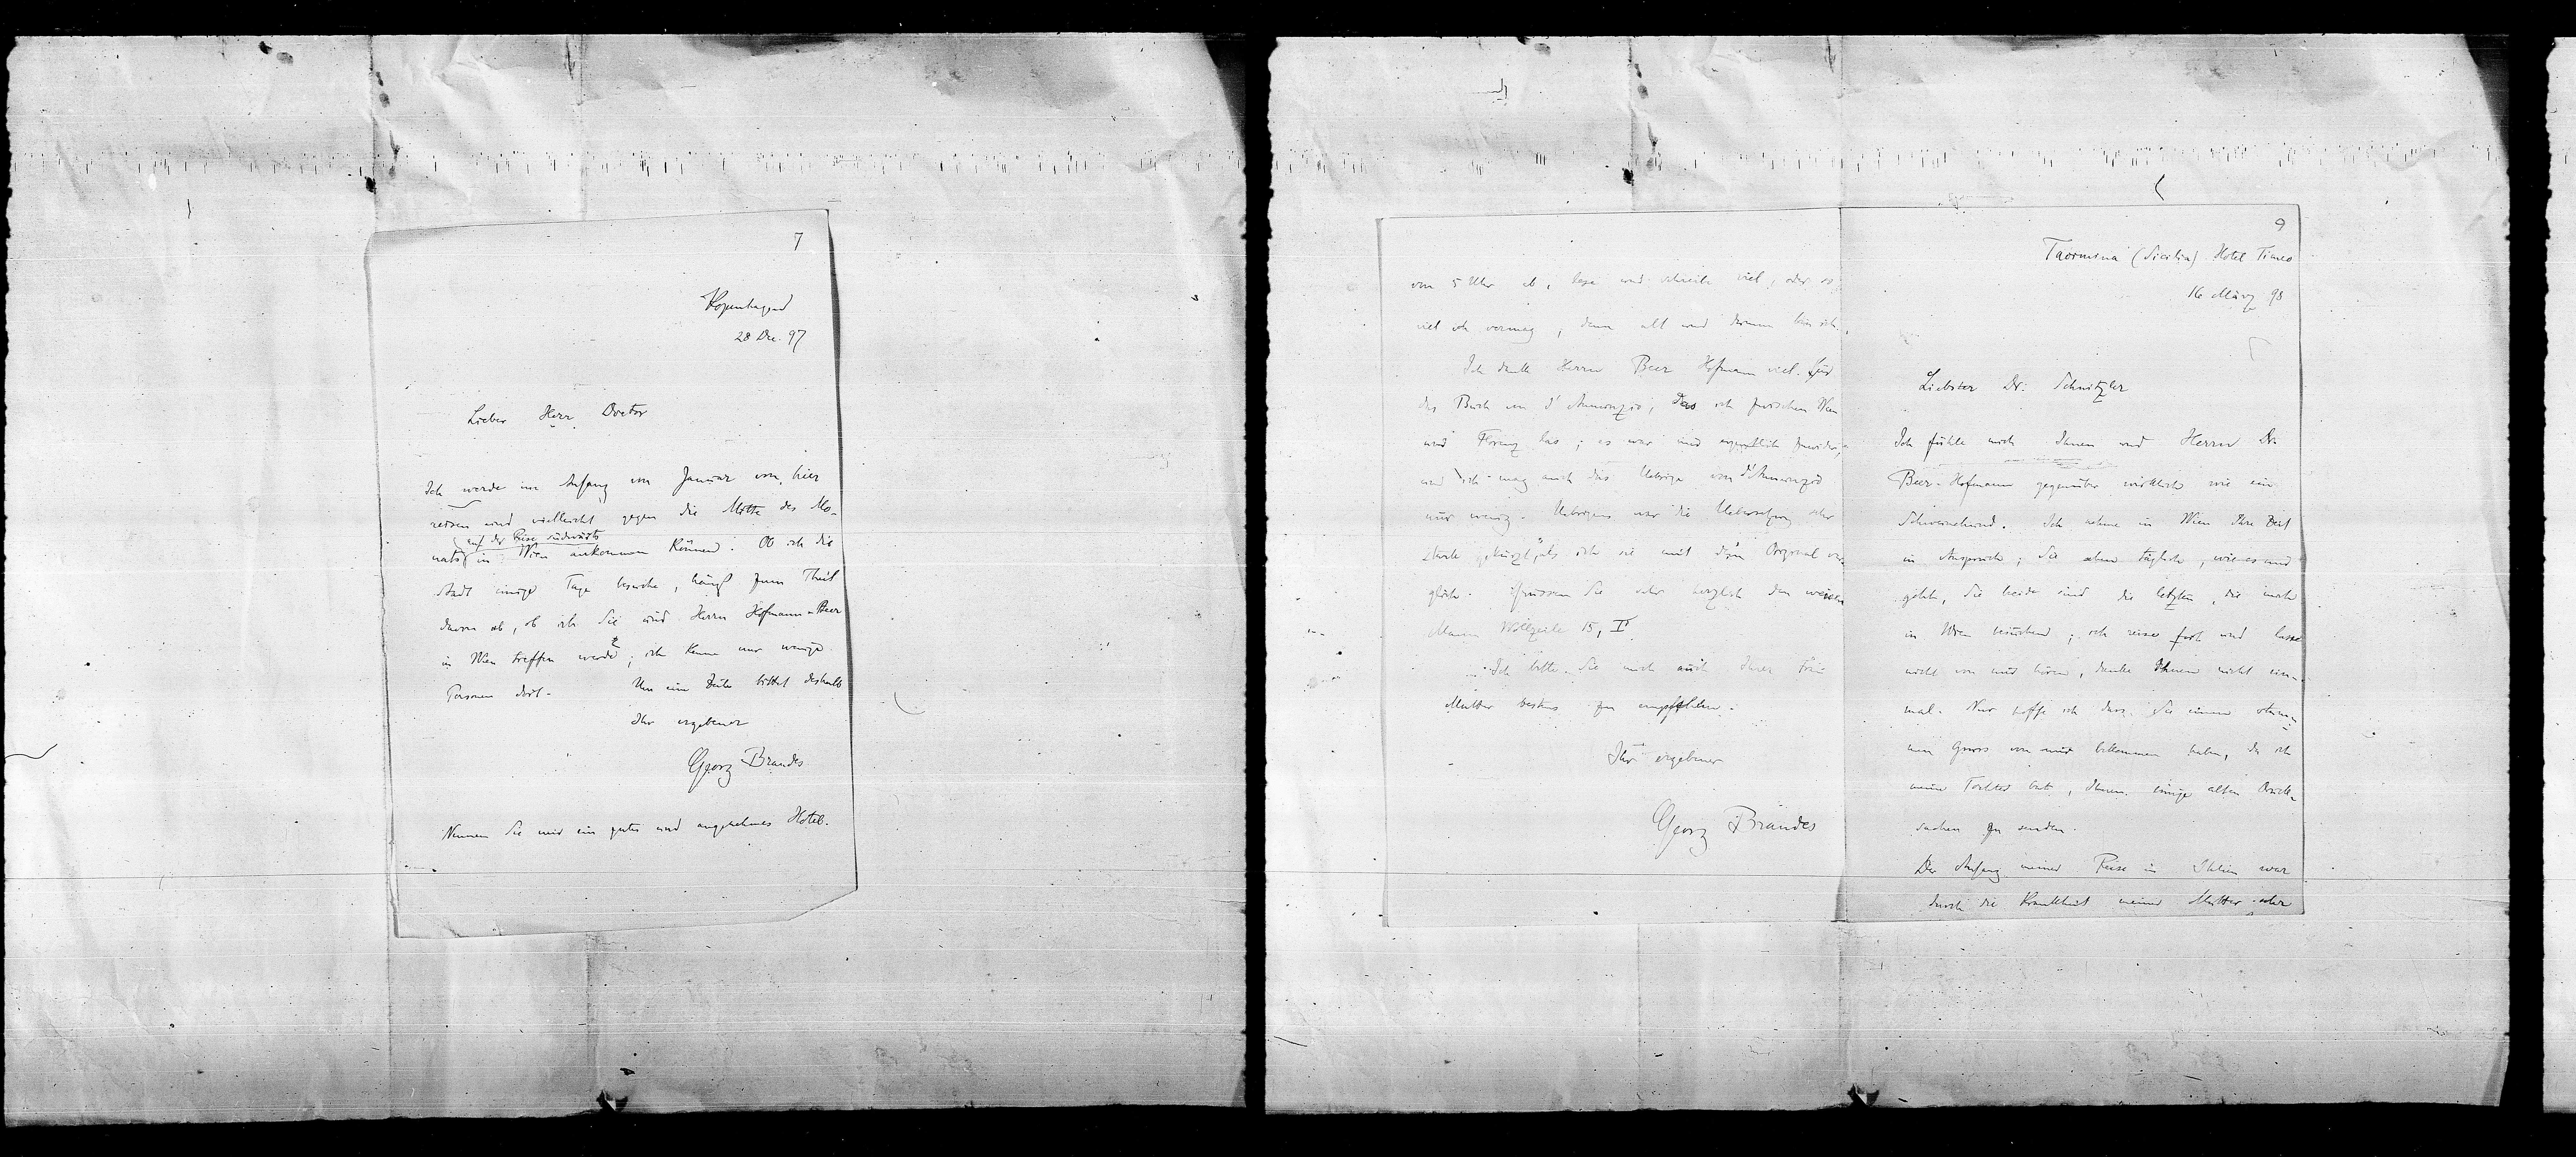 7
Kopenhagen
28 Dec. 97
Lieber Herr Doctor
Ich werde im Anfang von Januar von hier
reisen und vielleicht gegen die Mitte des Mo-
auf der Reise südwärts
nats in Wien ankommen können. Ob ich die
Stadt einige Tage besuche, hängt zum Theil
davon ab, ob ich Sie und Herrn Hofmann-Beer
in Wien treffen werde; ich kenne nur wenige
Personen dort. Um eine Zeile bittet deshalb
Ihr ergebener
Georg Brandes
Nennen Sie mir ein gutes und angenehmes Hotel.
von 5 Uhr ab, lese und schreibe viel, oder so
viel ich vermag, denn alt und dumm bin ich.
Ich danke Herrn Beer Hofmann viel für
das Buch von d'Annunzio, das ich zwischen Wien
und Florenz las; es war mir eigentlich zuwider,
und ich mag auch das Uebrige von d'Annunzio
nur wenig. Uebrigens war die Uebersetzung sehr
stark gekürzt, als ich sie mit dem Original ver-
glich. Grüssen Sie sehr herzlich den weisen
Mann Wollzeile 15, I.
Ich bitte Sie mich auch Ihrer Frau
Mutter bestens zu empfehlen.
Ihr ergebener
Georg Brandes
9
Taormina (Sicilia) Hotel Timeo
16 März 98
Liebster Dr. Schnitzler
Ich fühle mich Ihnen und Herrn Dr.
Beer-Hofmann gegenüber wirklich wie ein
Schweinehund. Ich nehme in Wien Ihre Zeit
in Anspruch; Sie sehen täglich, wie es mir
geht, Sie beide sind die letzten, die mich
in Wien besuchen; ich reise fort und lasse
nicht von mir hören, danke Ihnen nicht ein-
mal. Nur hoffe ich dass Sie einen stum-
men Gruss von mir bekommen haben, da ich
meine Tochter bat, Ihnen einige alten Druck-
sachen zu senden.
Der Anfang meiner Reise in Italien war
durch die Krankheit meiner Mutter sehr